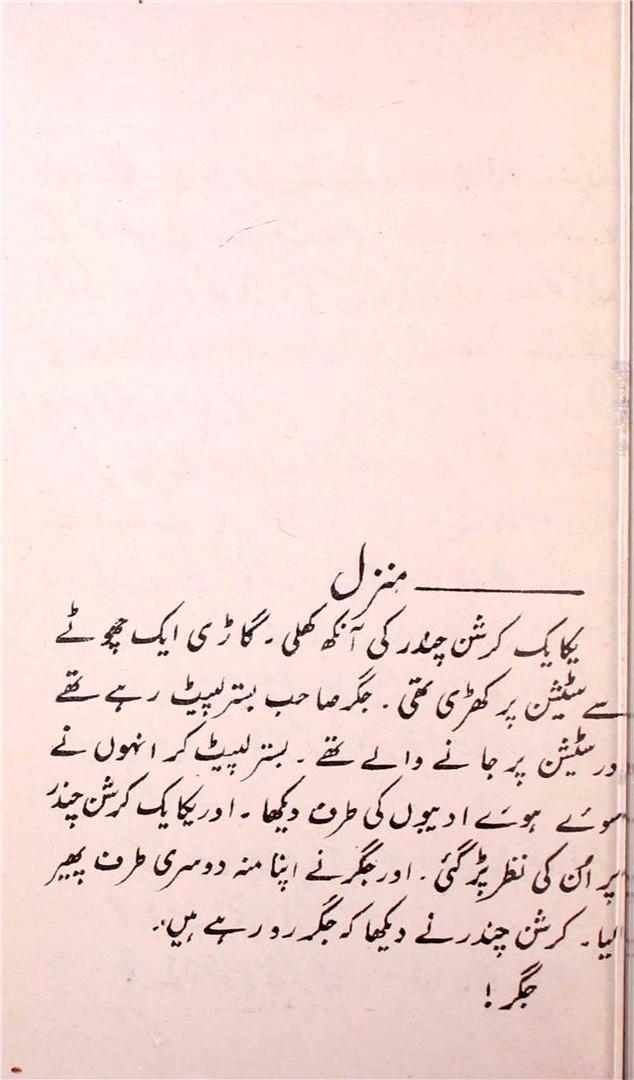 منزل
یکایک کرشن چندر کی آنکھ کھلی۔ گاڑی ایک چھوٹے
سے سٹیشن پر کھڑی تھی۔ جگر صاحب بستر لپیٹ رہے تھے
ور سٹیشن پر جانے والے تھے۔ بستر لپیٹ کر انہوں نے
سوئے ہوئے ادیبوں کی طرف دیکھا۔ اور یکایک کرشن چندر
پر اُن کی نظر پڑ گئی۔ اور جگر نے اپنا منہ دوسری طرف پھیر
لیا۔ کرشن چندر نے دیکھا کہ جگر رو رہے ہیں۔
جگر!